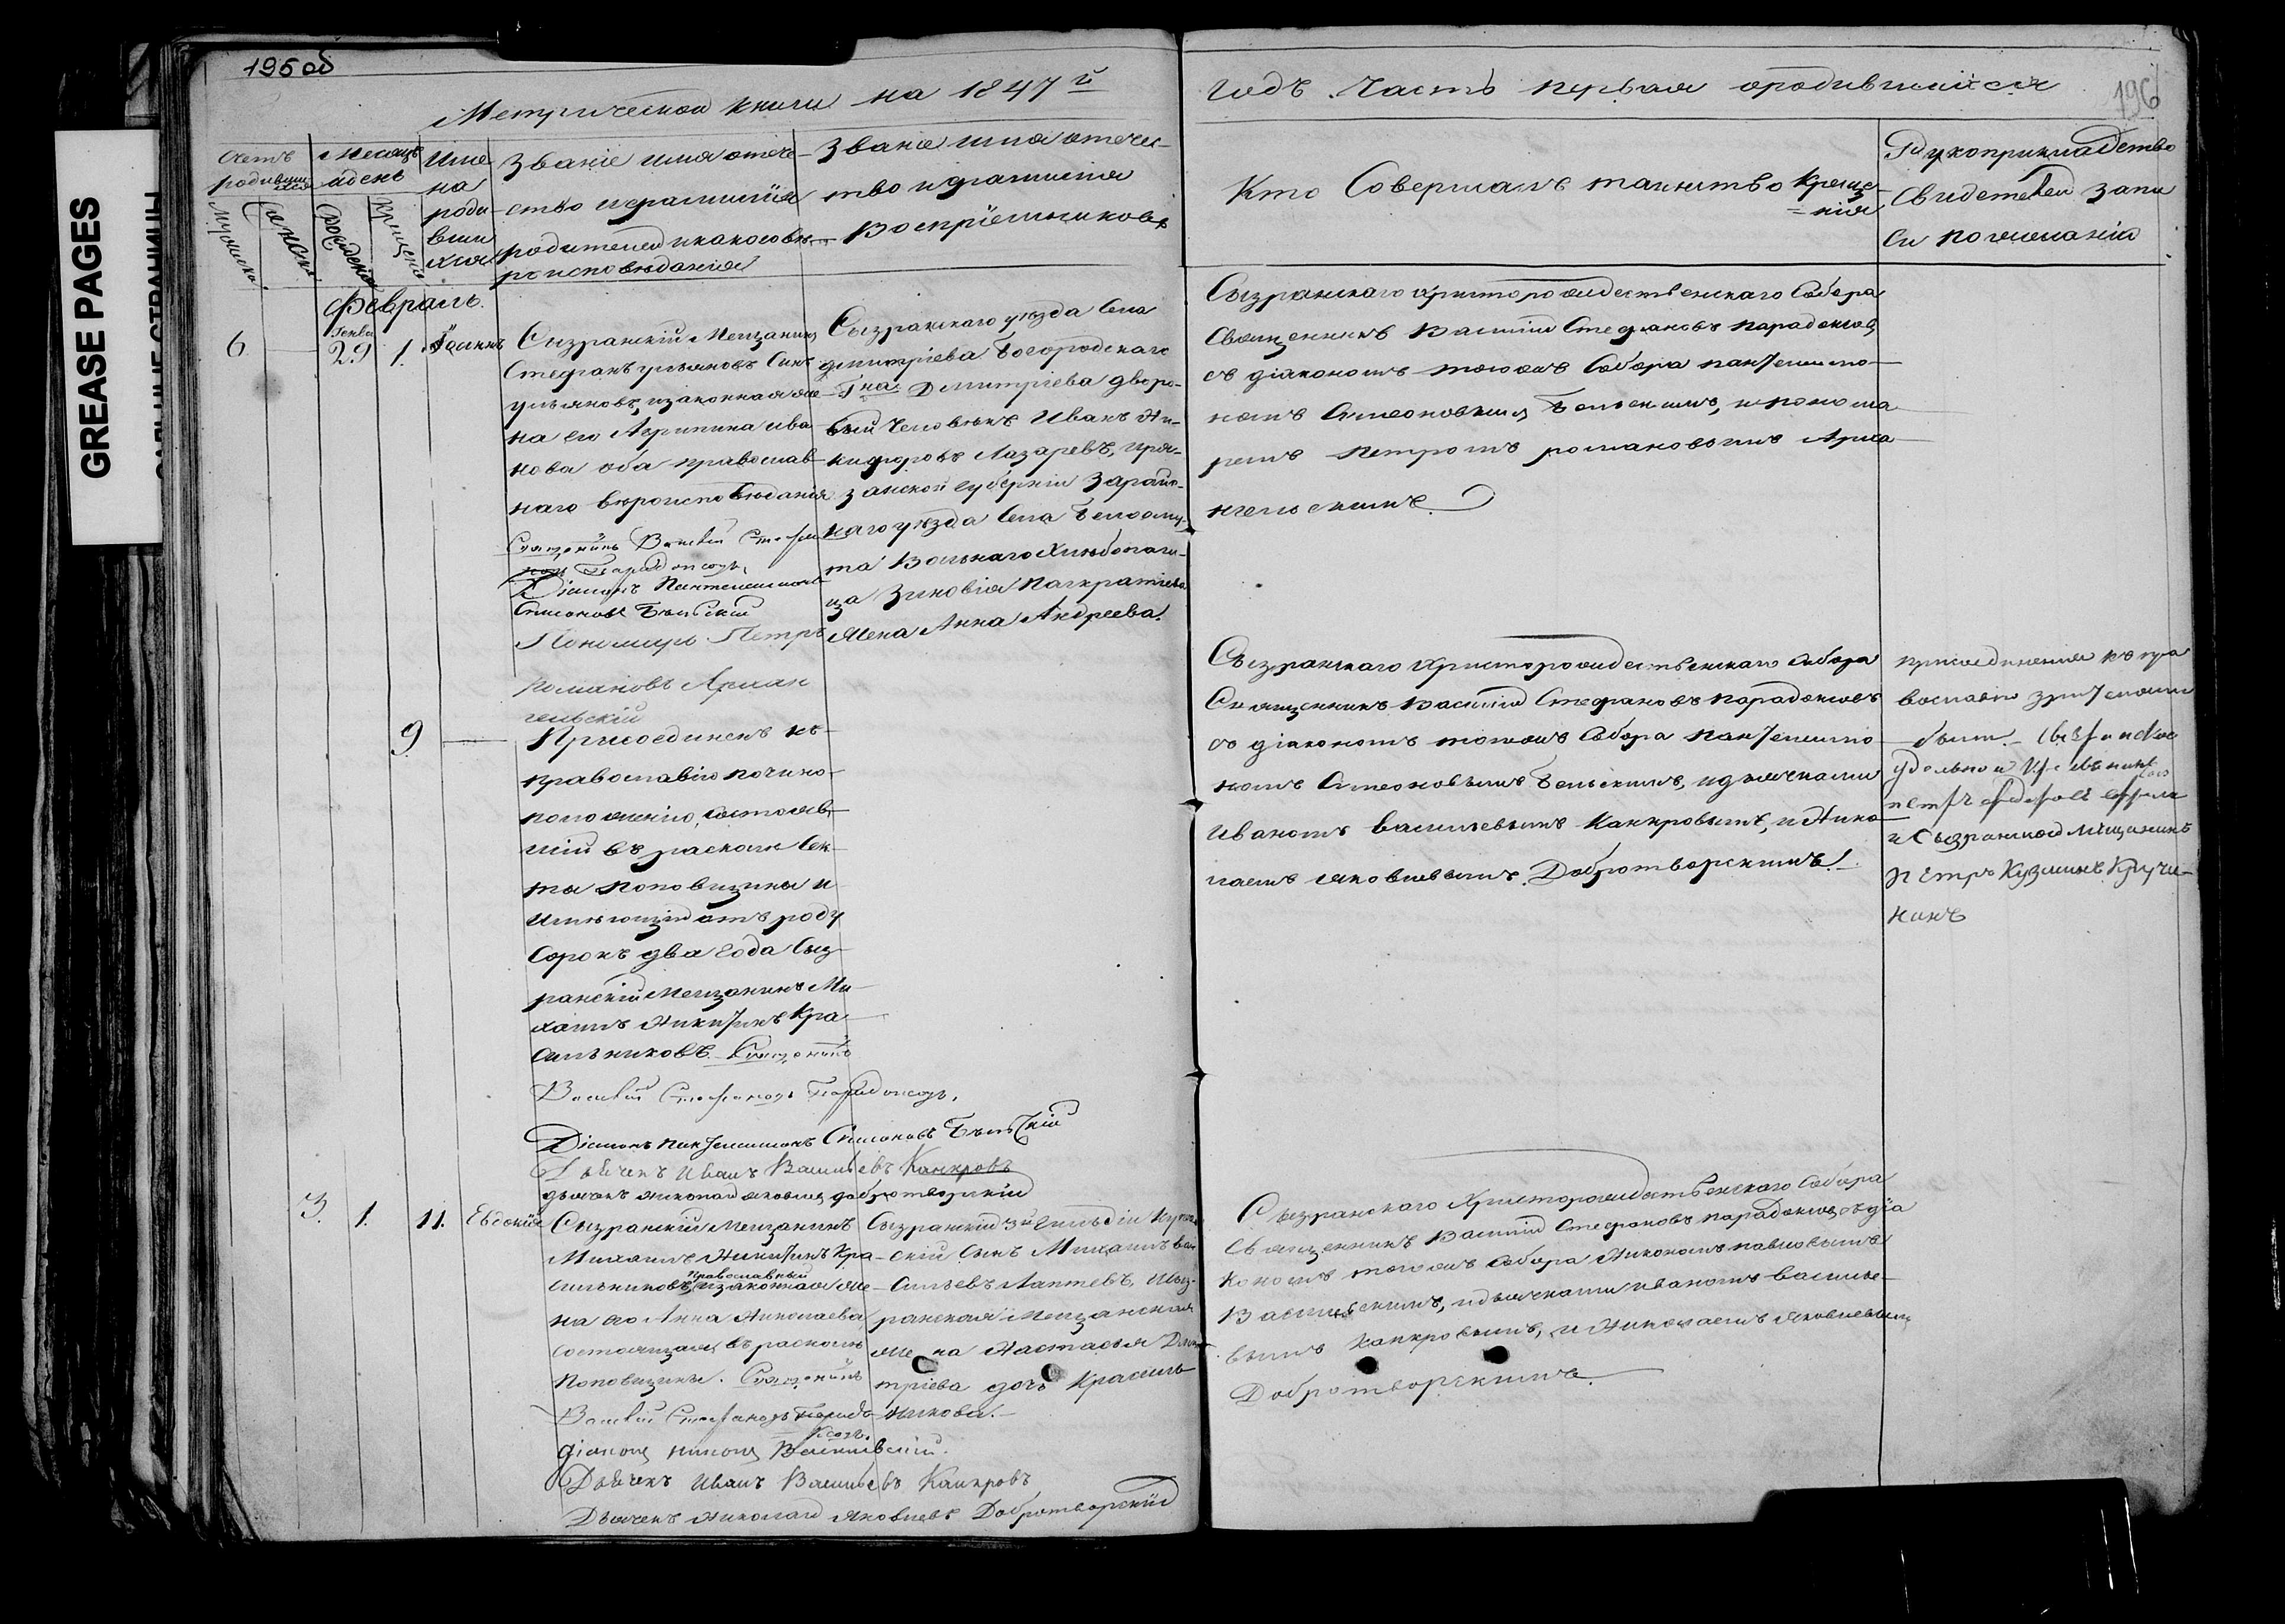 195 об
GREASE PAGES
Метрической книги на 1847й
годъ. Часть первая о родившихся
196
Счетъ родившихся
Мужеска
Женска
Месяцъ и день
Рожденія
Крещенія
Имена родившихся
Званіе имя отече-
ство и фамилія
родителей и какого вѣ-
роисповѣданія
Званіе имя отечес-
тво и фамилія
Воспріемниковъ
Кто Совершалъ таинство Креще-
=нія
Рукоприкладство
Свидетелей запи
си по желанію
Февраль.
6
Генва
29
1.
Іоаннъ
Сызранскій Мещанинъ
Стефанъ Ульяновъ Сынъ
Ульяновъ, и законная же-
на его Агрипина Ива
нова оба православ
наго вероисповѣданія
Священникъ Василій Стефа
новъ Парадоксовъ
Діаконъ Пантелеимонъ
Симеоновъ Бѣльскій
Пономарь Петръ
Романовъ Архан
гельскій
Сызранскаго уѣзда Села
Дмитріева Богородскаго
Гна Дмитріева дворо-
вый человѣкъ Иванъ Ни-
кифоровъ Лазаревъ, и Ря-
занской губерніи Зарай-
скаго уѣзда Села Белоому-
та Вольнаго Хлебопаш-
ца Зиновія Панкратіева
Жена Анна Андреева.
Сызранскаго Христорождественскаго Собора
Священникъ Василій Стефановъ Парадоксовъ
съ діакономъ тогожъ Собора Пантелеимо-
номъ Симеоновымъ Бельскимъ, и понома
ремъ Петромъ Романовымъ Арха
нгельскимъ.
9
Присоединенъ къ
православію по чино-
положенію, состояв-
шій въ расколе Сек-
ты поповщины и
имѣющій отъ роду
Сорокъ два года Сыз-
ранскій Мещанинъ Ми
хаилъ Никитинъ Кра-
сильниковъ. Священникъ
Василій Стефановъ Парадоксовъ.
Діаконъ Пантелеимонъ Симеоновъ Бѣльскій
Дьячекъ Иванъ Васильевъ Канкровъ
дьячекъ Николай Яковлевъ Добротворскій
Сызранскаго Христорождественскаго Собора
Священникъ Василій Стефановъ Парадоксовъ
съ діакономъ тогожъ Собора Пантелеимо
номъ Симеоновымъ Бельскимъ, и дьячками
Иваномъ Васильевымъ Канкровымъ, и Нико-
лаемъ Яковлевымъ Добротворскимъ.
присоединенія къ пра
вославію зрителями
были.
удельной
Петръ
и Сызранской мещанинъ
Петръ Кузминъ Кручи-
нинъ
3.
1.
11.
Евдокія
Сызранскій Мещанинъ
Михаилъ Никитинъ Кра-
сильниковъ, православный и законная же-
на его Анна Николаева
состоящая въ расколе
поповщины. Священникъ
Василій Стефановъ Парадо
ксовъ.
діаконъ Никонъ Васильевскій.
Дьячекъ Иванъ Васильевъ Канкровъ
Дьячекъ Николай Яковлевъ Добротворскій
Сызранскій 3й Гильдіи Купече
скій Сынъ Михаилъ Ва
сильевъ Лаптевъ, и Сыз-
ранская Мещанская
жена Настасья Дми
тріева дочь Красиль
никова.
Сызранскаго Христорождественскаго Собора
Священникъ Василій Стефановъ Парадоксовъ съ діа
кономъ тогожъ Собора Никономъ Павловымъ
Васильевскимъ, и дьячками Иваномъ Василье-
вымъ Канкровымъ, и Николаемъ Яковлевымъ
Добротворскимъ.